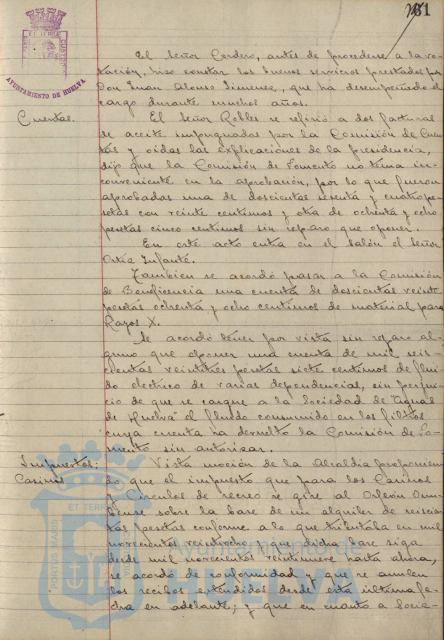 181
AYUNTAMIENTO DE HUELVA
El Señor Cordero, antes de procederse a la vo-
tación, hizo constar los buenos servicios prestados por
Don Juan Alonso Jimenez, que ha desempeñado el
cargo durante muchos años.
Cuentas.
El Señor Robles se refirió a dos facturas
de aceite impugnadas por la Comisión de Cuen-
tas y oidas las explicaciones de la presidencia,
dijo que la Comisión de Fomento no tenia in-
conveniente en la aprobación, por lo que fueron
aprobadas una de doscientas setenta y cuatro pe-
setas con veinte centimos y otra de ochenta y ocho
pesetas cinco centimos sin reparo que oponer.
En este acto entra en el salón el Señor
Oria Infante.
Tambien se acordó pasar a la Comisión
de Beneficencia una cuenta de doscientas veinte
pesetas ochenta y ocho centimos de material para
Rayos X.
Se acordó tener por vista sin reparo al-
guno que oponer una cuenta de mil seis-
cientas veintitres pesetas siete centimos de flui-
do electrico de varias dependencias, sin perjui-
cio de que se cargue a la Sociedad de "aguas
de Huelva" el fluido consumido en los filtros
cuya cuenta ha devuelto la Comisión de Fo-
mento sin autorizar.
Impuestos.
Casinos
Vista moción de la Alcaldia proponien-
do que el impuesto que para los Casinos
y Circulos de recreo se gire al Orfeón Onu-
bense sobre la base de un alquiler de seiscien-
tas pesetas conforme a lo que tributaba en mil
novecientos veintiocho y que dicha base siga
desde mil novecientos veintinueve hasta ahora,
se acordó de conformidad y que se anulen
los recibos extendidos desde esta última fe-
cha en adelante; y que en cuanto a Socie-
Ayuntamiento de
HUELVA
PORTUS MARIS
ET TERRAE